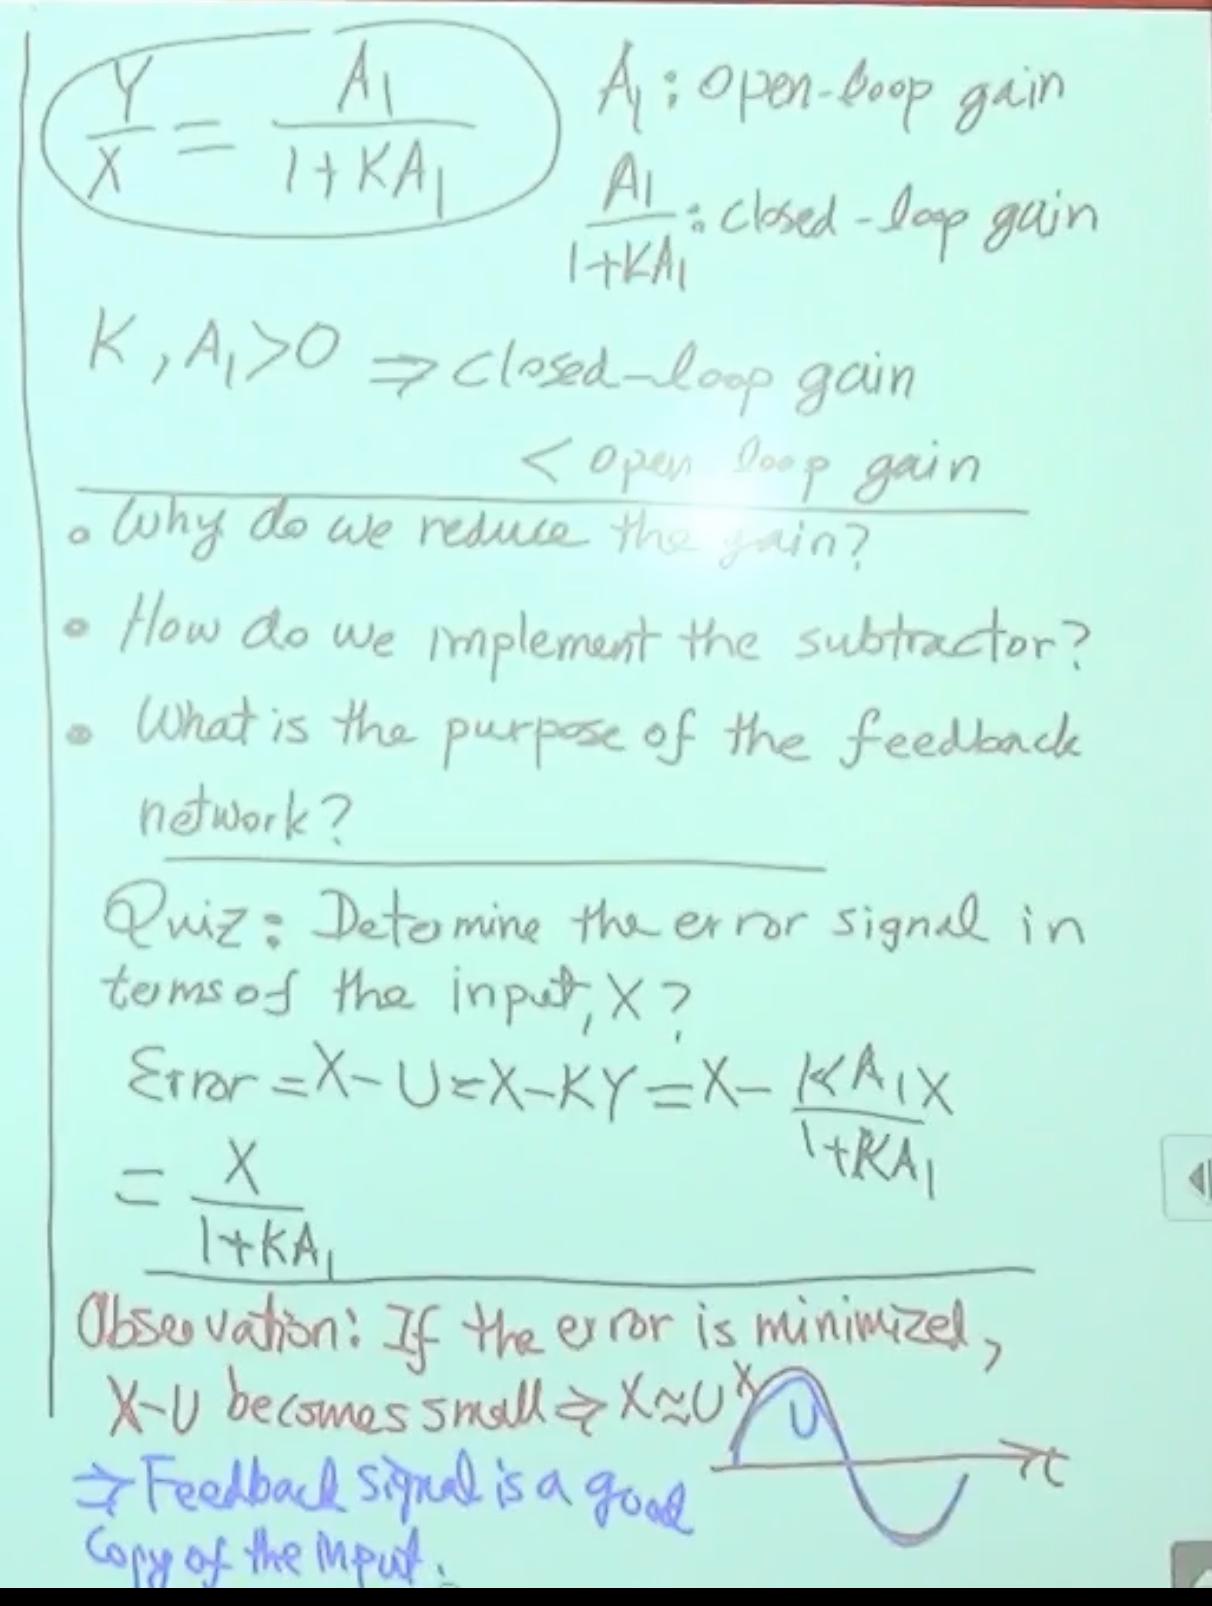 Y/X = A₁/(1+KA₁)
A₁: open-loop gain
A₁/(1+KA₁): closed-loop gain
K, A₁>0 ⇒ closed-loop gain
< open loop gain
• Why do we reduce the gain?
• How do we implement the subtractor?
• What is the purpose of the feedback
network?
Quiz: Determine the error signal in
terms of the input, X?
Error = X - U = X - KY = X - KA₁X/(1+KA₁)
= X/(1+KA₁)
Observation: If the error is minimized,
X-U becomes small ⇒ X≈U
X
U
t
⇒ Feedback signal is a good
copy of the input.